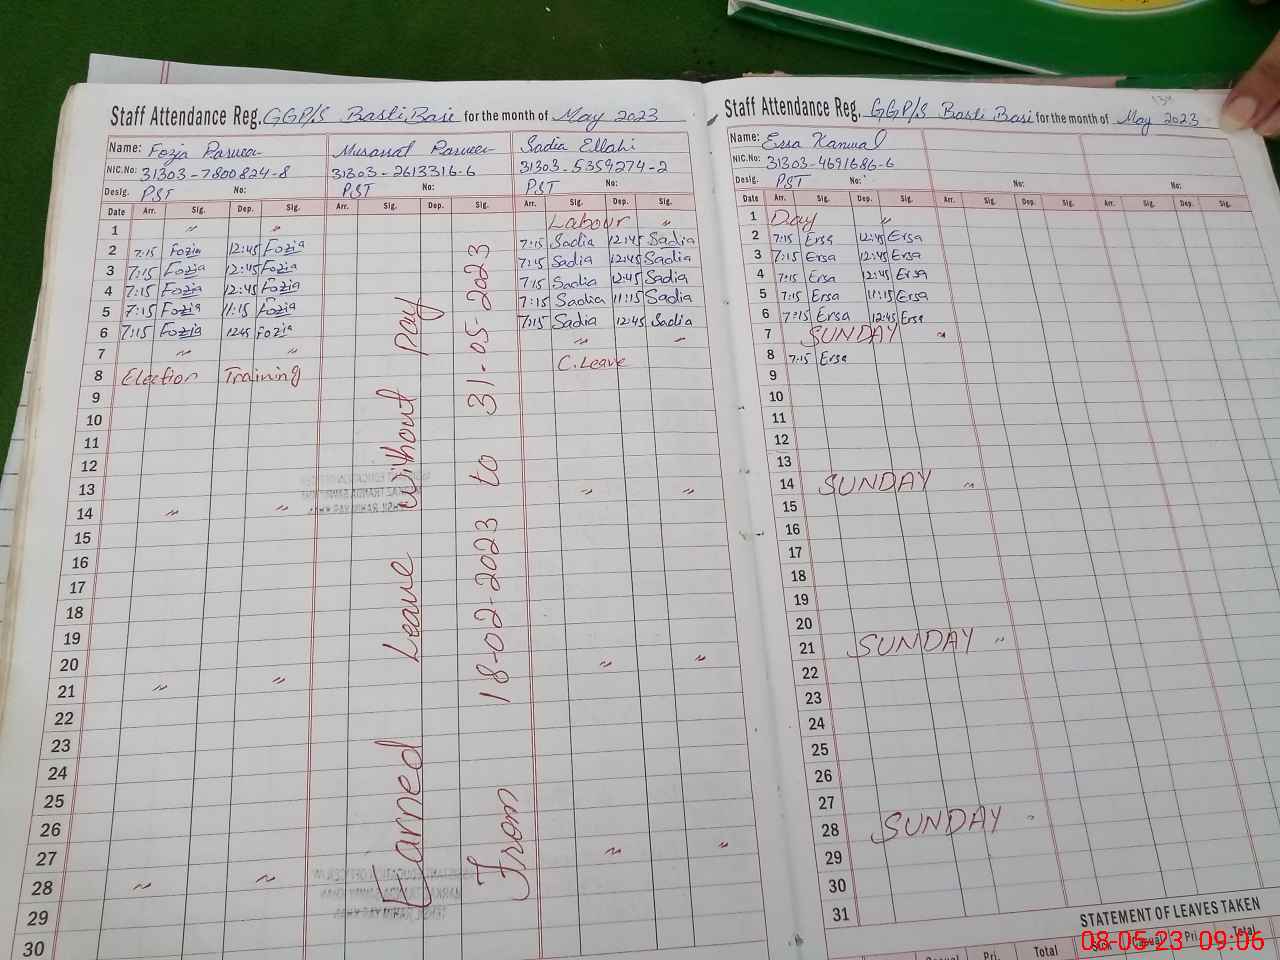 Staff Attendance Reg. GGP/S Basti Basi for the month of May 2023
Name: Fozia Parveen Musarrat Parveen Sadia Ellahi
NIC.No: 31303-7800824-8 31303-2613316-6 31303-5359274-2
Desig. PST No: PST No: PST No:
Date Arr. Sig. Dep. Sig. Arr. Sig. Dep. Sig. Arr. Sig. Dep. Sig.
1 〃 〃 Labour 〃
2 7:15 Fozia 12:45 Fozia 7:15 Sadia 12:45 Sadia
3 7:15 Fozia 12:45 Fozia 7:15 Sadia 12:45 Sadia
4 7:15 Fozia 12:45 Fozia 7:15 Sadia 12:45 Sadia
5 7:15 Fozia 11:15 Fozia 7:15 Sadia 11:15 Sadia
6 7:15 Fozia 12:45 Fozia 7:15 Sadia 12:45 Sadia
7 〃 〃 〃 〃
8 Election Training C.Leave
9
10
11
12
13
14 〃 〃 〃 〃
15
16
17
18
19
20
21 〃 〃 〃 〃
22
23
24
25
26
27
28 〃 〃 〃 〃
29
30
Earned Leave without pay
From 18-02-2023 to 31-05-2023
Staff Attendance Reg. GGP/S Basti Basi for the month of May 2023
Name: Ersa Kanwal
NIC.No: 31303-4691686-6
Desig. PST No: No: No:
Date Arr. Sig. Dep. Sig. Arr. Sig. Dep. Sig. Arr. Sig. Dep. Sig.
1 Day 〃
2 7:15 Ersa 12:45 Ersa
3 7:15 Ersa 12:45 Ersa
4 7:15 Ersa 12:45 Ersa
5 7:15 Ersa 11:15 Ersa
6 7:15 Ersa 12:45 Ersa
7 SUNDAY 〃
8 7:15 Ersa
9
10
11
12
13
14 SUNDAY 〃
15
16
17
18
19
20
21 SUNDAY 〃
22
23
24
25
26
27
28 SUNDAY 〃
29
30
31
STATEMENT OF LEAVES TAKEN
Casual Pri. Total Sick Casual Pri. Total
08-05-23 09:06